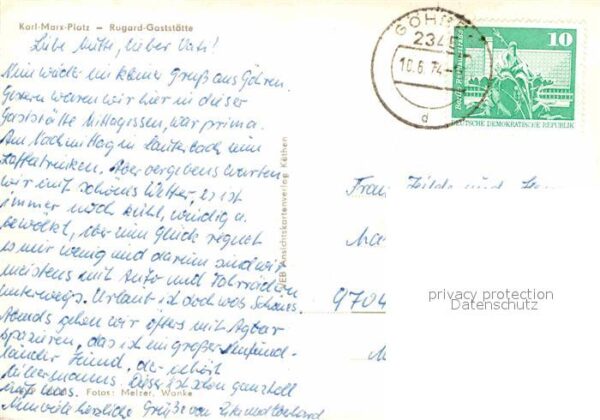 Karl-Marx-Platz – Rugard-Gaststätte
Liebe Mutti, lieber Vati!
Nun wieder ein kleiner Gruß aus Göhren.
Gestern waren wir hier in dieser
Gaststätte Mittagessen, war prima.
Am Nachmittag in Lauterbach zum
Kaffeetrinken. Aber vergebens warten
wir auf schönes Wetter, es ist
immer noch kühl, windig u.
bewölkt, aber zum Glück regnet
es nur wenig und darum sind wir
meistens mit Auto und Fahrrädern
unterwegs. Urlaub ist doch was Schönes
Abends gehen wir öfters mit
spazieren, das ist ein großer Neufund-
länder Hund, der gehört
Fotos: Melzer, Wanke
herzliche Grüße von
VEB Ansichtskartenverlag Köthen
GÖHREN
2345
10.6.74
d
10
DEUTSCHE DEMOKRATISCHE REPUBLIK
Hilde und
9704
privacy protection
Datenschutz